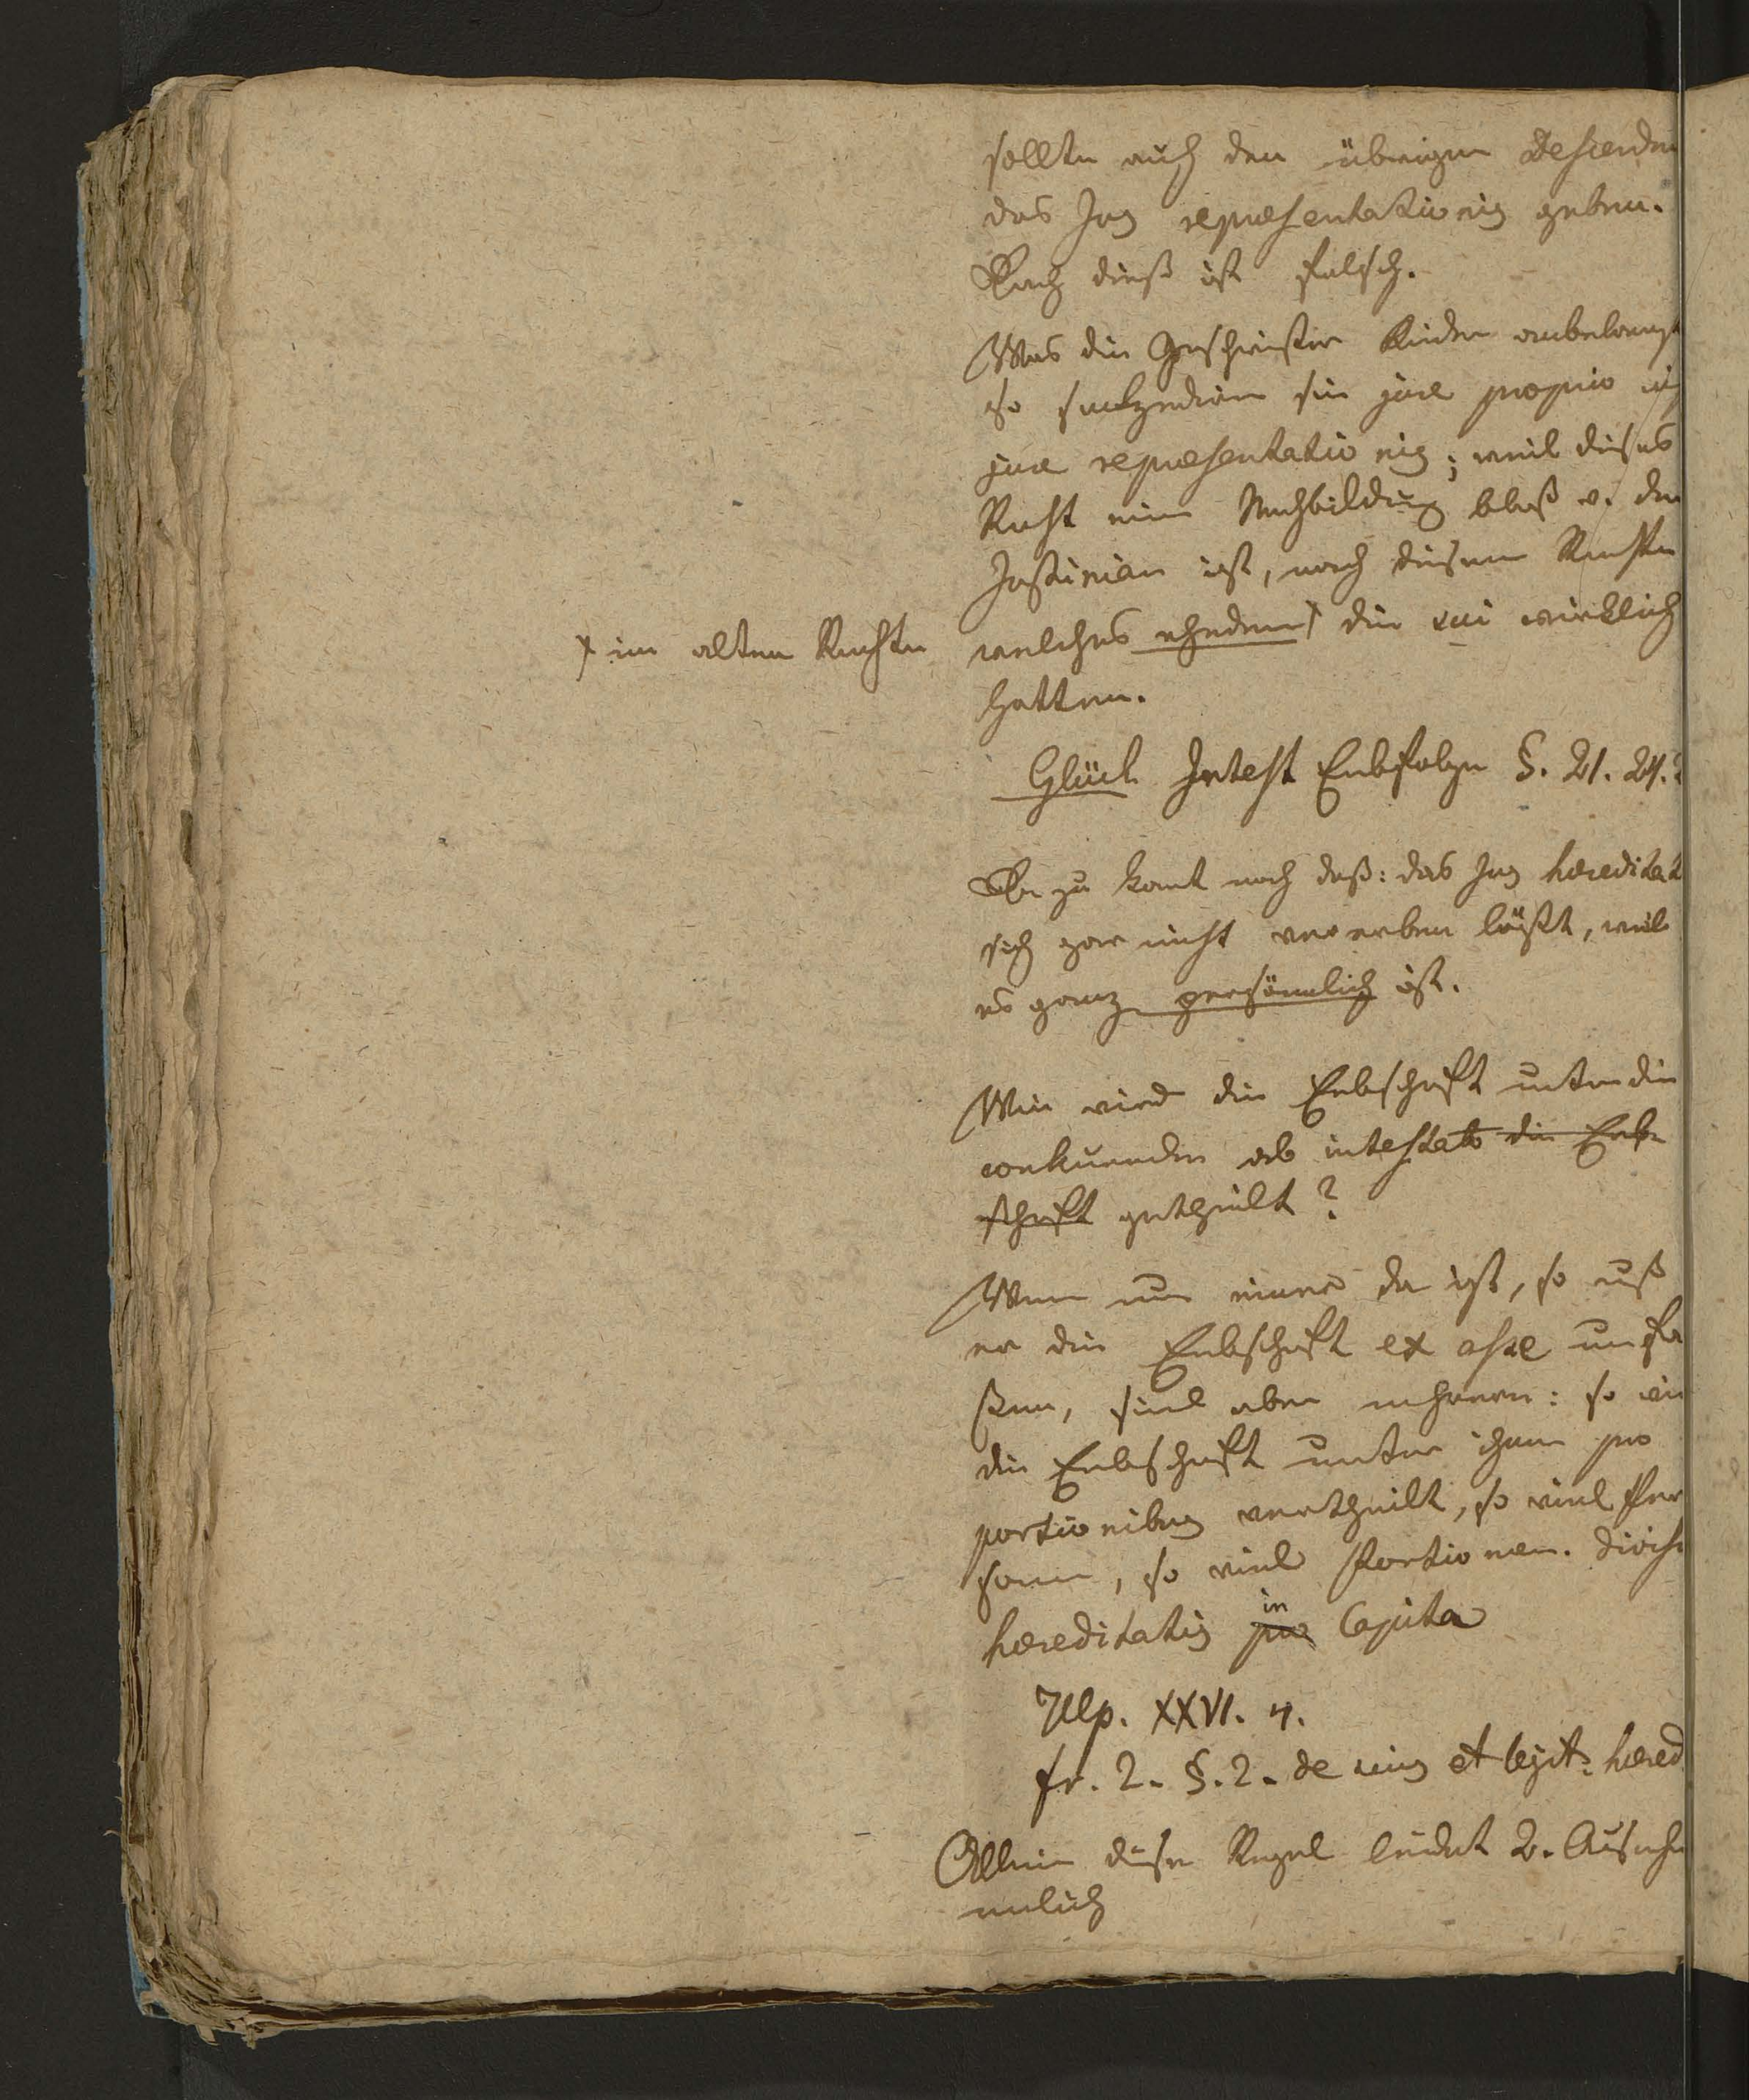 sollte auch den übrigen Descenden
das Jus repraesentationis geben.
Doch dieß ist falsch.
Was die Geschwister Kinder anbelangt
so sukzediren sie jure proprio nicht
jure repraesentationis; weil dieses
Recht eine Nachbildung bloß v. dem
Justinian ist, nach diesem Rechte
welches ehedem die sui wirklich
⨯ im alten Rechte
hatten.
Glück Intest Erbfolge §. 21. 24.
Da zu komt noch daß: das Jus hereditat
sich gar nicht vererben läßt, weil
es ganz persönnlich ist.
Wie wird die Erbschaft unter die
ab intestato die Erb-
schaft getheilt?
Wenn nur einer da ist, so muß
er die Erbschaft ex asse umfa
ßen, sind aber mehrere: so wird
die Erbschaft unter ihnen pro
portionibus vertheilt, so viel Per
sonen, so viel Portionen. divisio
hereditatis pro in Capita
Ulp. XXVI. 4.
fr. 2. §. 2. de suis et legit: hered
Allein diese Regel leidet 2. Ausnah
nemlich